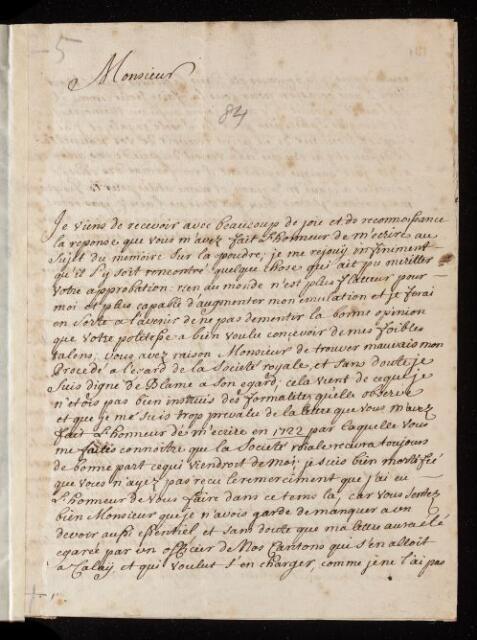 5
Monsieur
84
Je viens de recevoir avec beaucoup de joie et de reconnoissance
la reponse que vous m'avez fait l'honneur de m'ecrire au
sujet du memoire sur la poudre; je me rejouy infiniment
qu'il s'y soit rencontré quelque chose qui ait pu meriter
votre approbation: rien au monde n'est plus flateur pour
moi et plus capable d'augmenter mon emulation et je ferai
en sorte a l'avenir de ne pas dementir la bonne opinion
que votre politesse a bien voulu concevoir de mes foibles
talens; vous avez raison Monsieur de trouver mauvais mon
procedé a l'egard de la Societé royale, et sans doute je
suis digne de blame a son egard; cela vient de ce que je
n'etois pas bien instruis des formalites qu'elle observe
et que je me suis trop prevalu de la lettre que vous m'avez
fait l'honneur de m'ecrire en 1722 par laquelle vous
me faites connoitre que la Societé roiale recevra toujours
de bonne part ce qui viendroit de moi; je suis bien mortifié
que vous n'ayez pas recu le remerciment que j'ai eu
l'honneur de vous faire dans ce tems la, car vous sentez
bien Monsieur que je n'avois garde de manquer a un
devoir aussi essentiel et sans doute que ma lettre aura eté
egarée par un officier de nos Cantons qui s'en alloit
a Calay, et qui voulut s'en charger, comme je ne l'ai pas